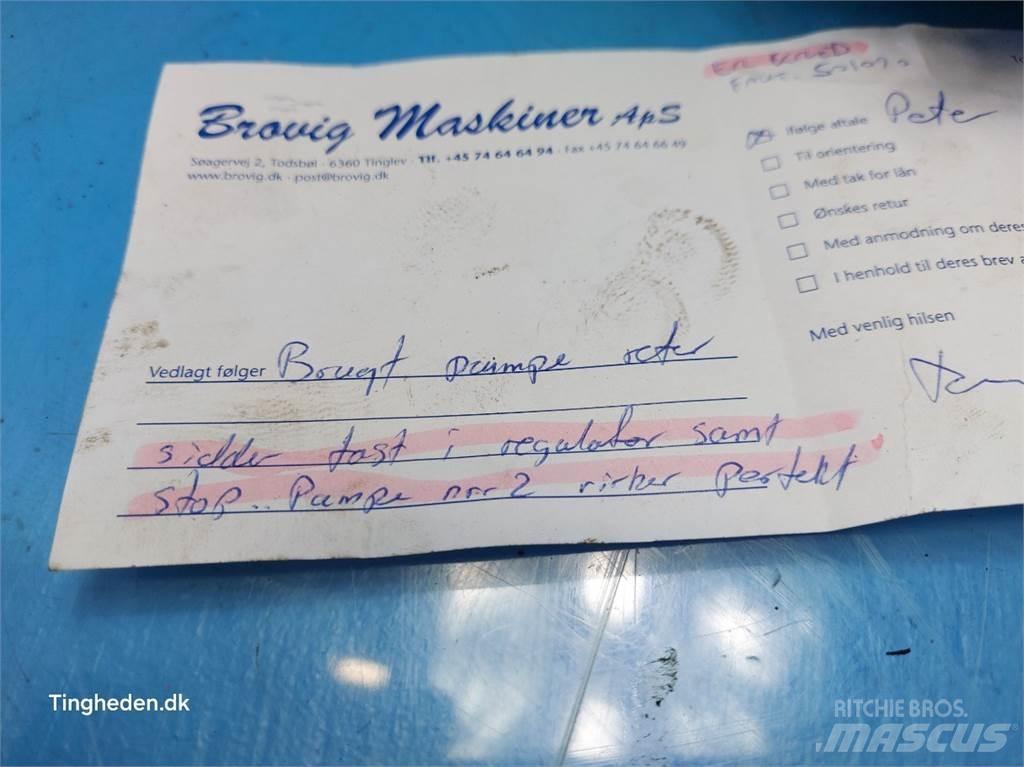 Brovig Maskiner ApS
Søagervej 2, Todsbøl · 6360 Tinglev · Tlf. +45 74 64 64 94 · Fax +45 74 64 66 49
www.brovig.dk · post@brovig.dk
Ifølge aftale Peter
Til orientering
Med tak for lån
Ønskes retur
Med anmodning om deres
I henhold til deres brev a
Med venlig hilsen
Vedlagt følger Brougt pumpe
sidder fast i regulator samt
stop.. Pumpe nr 2 virker perfekt
Tingheden.dk
RITCHIE BROS.
MASCUS